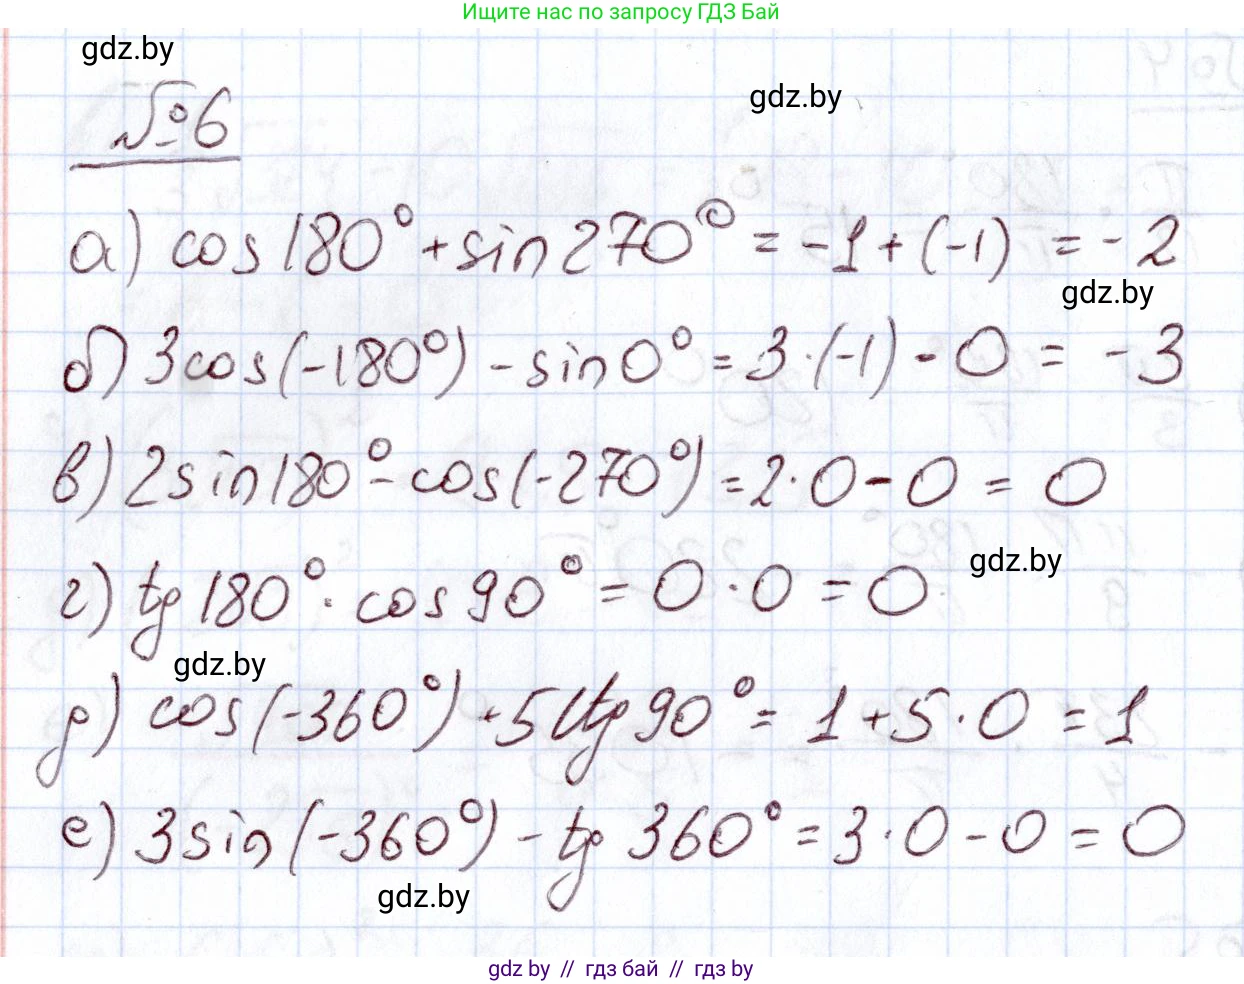 Ищите нас по запросу ГДЗ Бай
gdz.by
gdz.by
№6
а) cos180° + sin270° = -1 + (-1) = -2
gdz.by
б) 3cos(-180°) - sin0° = 3·(-1) - 0 = -3
в) 2sin180° - cos(-270°) = 2·0 - 0 = 0
gdz.by
г) tg180° · cos90° = 0·0 = 0
gdz.by
д) cos(-360°) + 5ctg90° = 1 + 5·0 = 1
е) 3sin(-360°) - tg360° = 3·0 - 0 = 0
gdz.by
gdz by // гдз бай // гдз by